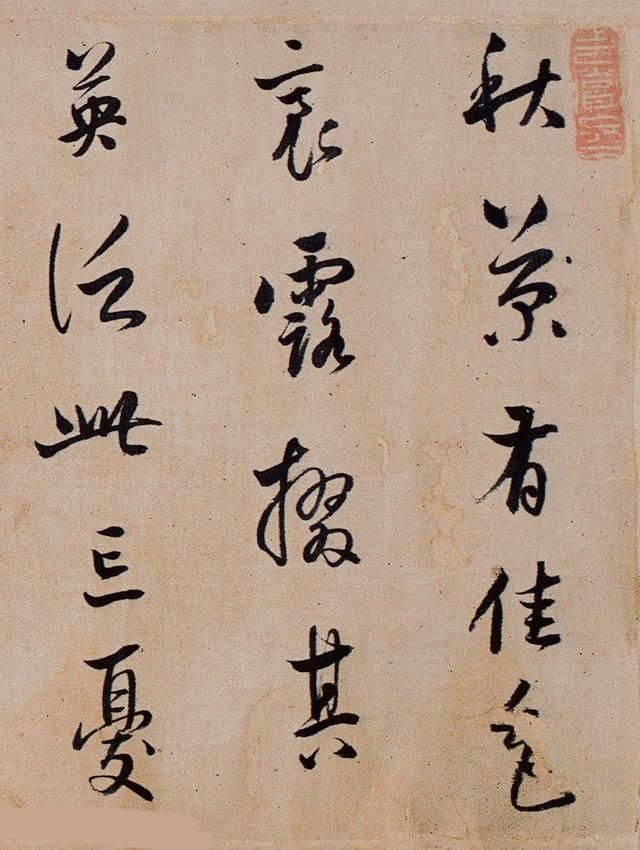 玄賞齋
秋菊有佳色
裛露掇其
英泛此忘憂